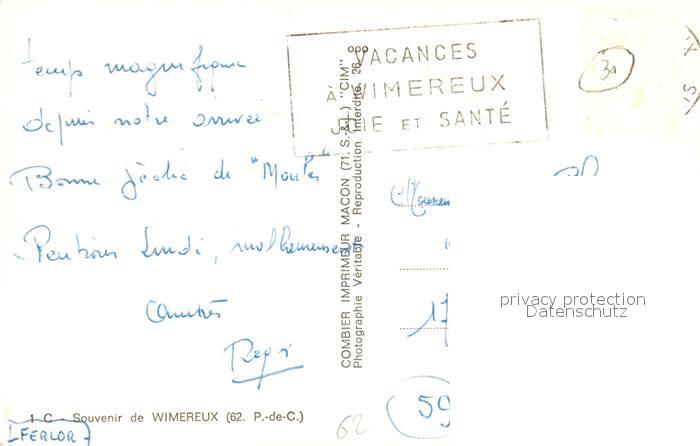 temps magnifique
depuis notre arrivée
Bonne pêche de "Moules"
Rentrons Lundi, malheureusement
Amitiés
VACANCES
À WIMEREUX
JOIE ET SANTÉ
30
COMBIER IMPRIMEUR MACON (71. S.-&-L.) "CIM"
Photographie Véritable - Reproduction Interdite. 26
17
59
privacy protection
Datenschutz
1 C - Souvenir de WIMEREUX (62. P.-de-C.)
FERLOR
62